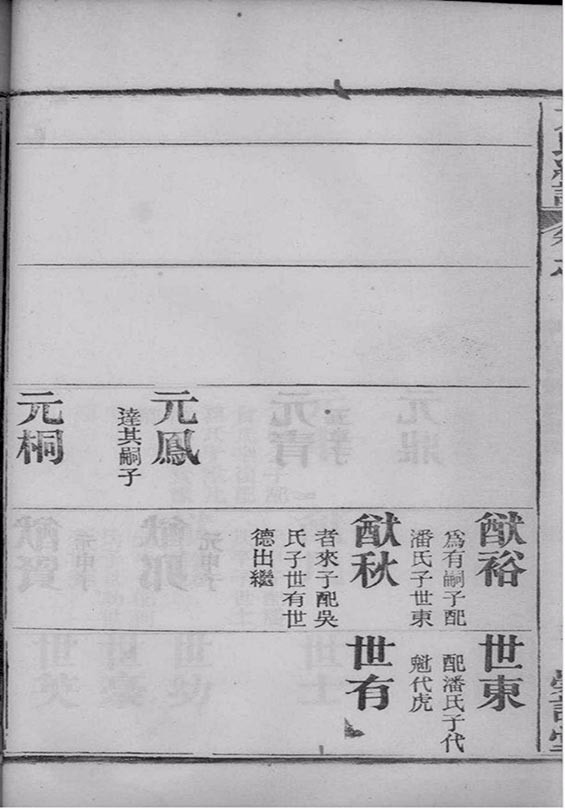 猷裕
爲有嗣子配
潘氏子世東
世東
配潘氏子代
魁代虎
猷秋
者來子配吳
氏子世有世
德出繼
世有
元鳳
達其嗣子
元桐